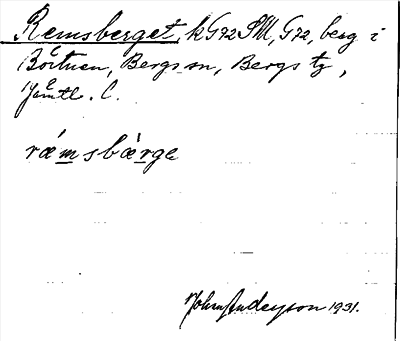 Remsberget, k G72 SM, G72, berg i
Börtnen, Bergs sn, Bergs tg,
Jämtl. l.
ræ´msbærge
John Anderson 1931.